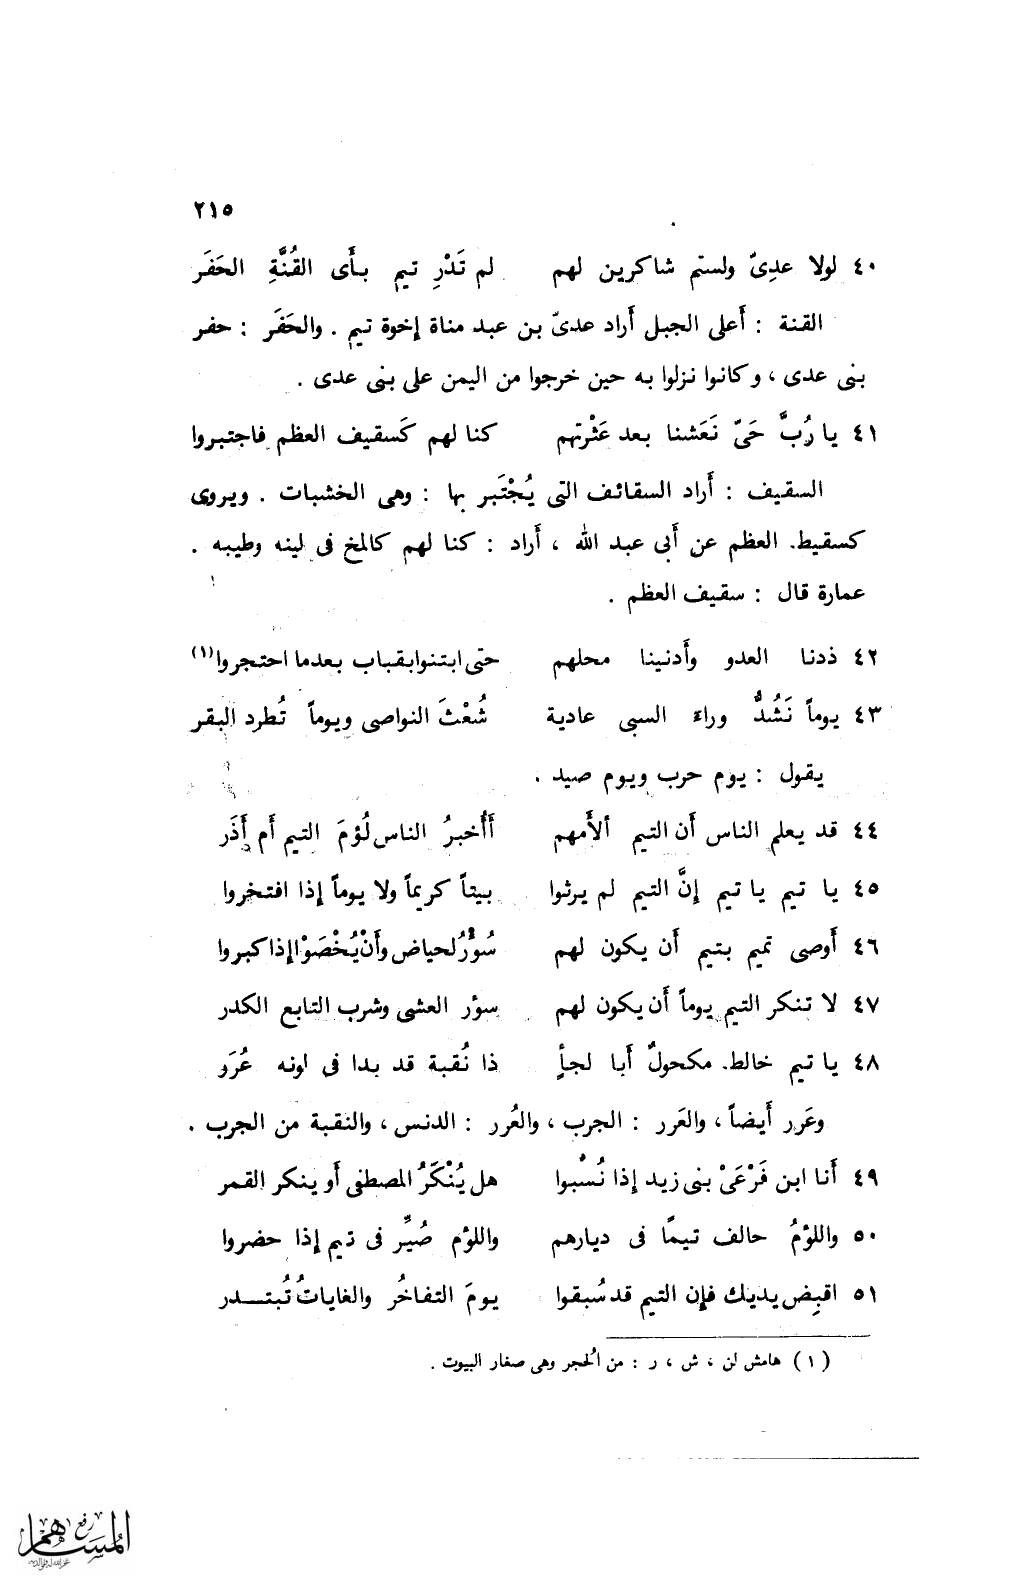 ٢١٥
٤٠ لولا عدِىّ ولستم شاكرين لهم لم تَدْرِ تيم بأَى القُنَّةِ الحَفَر
القنة : أَعلى الجبل أَراد عدىّ بن عبد مناة إخوة تيم . والحَفَر : حفر
بنى عدى ، وكانوا نزلوا به حين خرجوا من اليمن على بنى عدى .
٤١ يا رُبَّ حَىّ نَعَشنا بعد عَثْرتهم كنا لهم كَسقيف العظم فاجتبروا
السقيف : أَراد السقائف التى يُجْتَبر بها : وهى الخشبات . ويروى
كسقيط. العظم عن أَبى عبد الله ، أَراد : كنا لهم كالمخ فى لينه وطيبه .
عمارة قال : سقيف العظم .
٤٢ ذدنا العدو وأَدنينا محلهم حتى ابتنوا بقباب بعدما احتجروا(١)
٤٣ يوماً نَشُدُّ وراءَ السبى عادية شُعْثَ النواصى ويوماً تُطرد البقر
يقول : يوم حرب ويوم صيد .
٤٤ قد يعلم الناس أَن التيم ألأَمهم أَأُخبرُ الناس لُؤمَ التيم أَم أَذَر
٤٥ يا تيم يا تيم إِنَّ التيم لم يرثوا بيتاً كريماً ولا يوماً إذا افتخروا
٤٦ أَوصى تميم بتيم أَن يكون لهم سُؤْرُ لحياض وأَنْ يُخْصَوْا إذا كبروا
٤٧ لا تنكر التيم يوماً أَن يكون لهم سؤر العشى وشرب التابع الكدر
٤٨ يا تيم خالط. مكحولٌ أَبا لجأٍ ذا نُقبة قد بدا فى لونه عُرَو
وعَرر أَيضاً ، والعَرر : الجرب ، والعُرر : الدنس ، والنقبة من الجرب .
٤٩ أَنا ابن فَرْعَىْ بنى زيد إذا نُسْبوا هل يُنْكَرُ المصطفى أَو ينكر القمر
٥٠ واللؤمُ حالف تيمًا فى ديارهم واللؤم صُيِّر فى تيم إذا حضروا
٥١ اقبِض يديك فإن التيم قد سُبقوا يومَ التفاخُر والغاياتُ تُبتـــدر
( ١ ) هامش لن ، ش ، ر : من الحُجر وهى صغار البيوت .